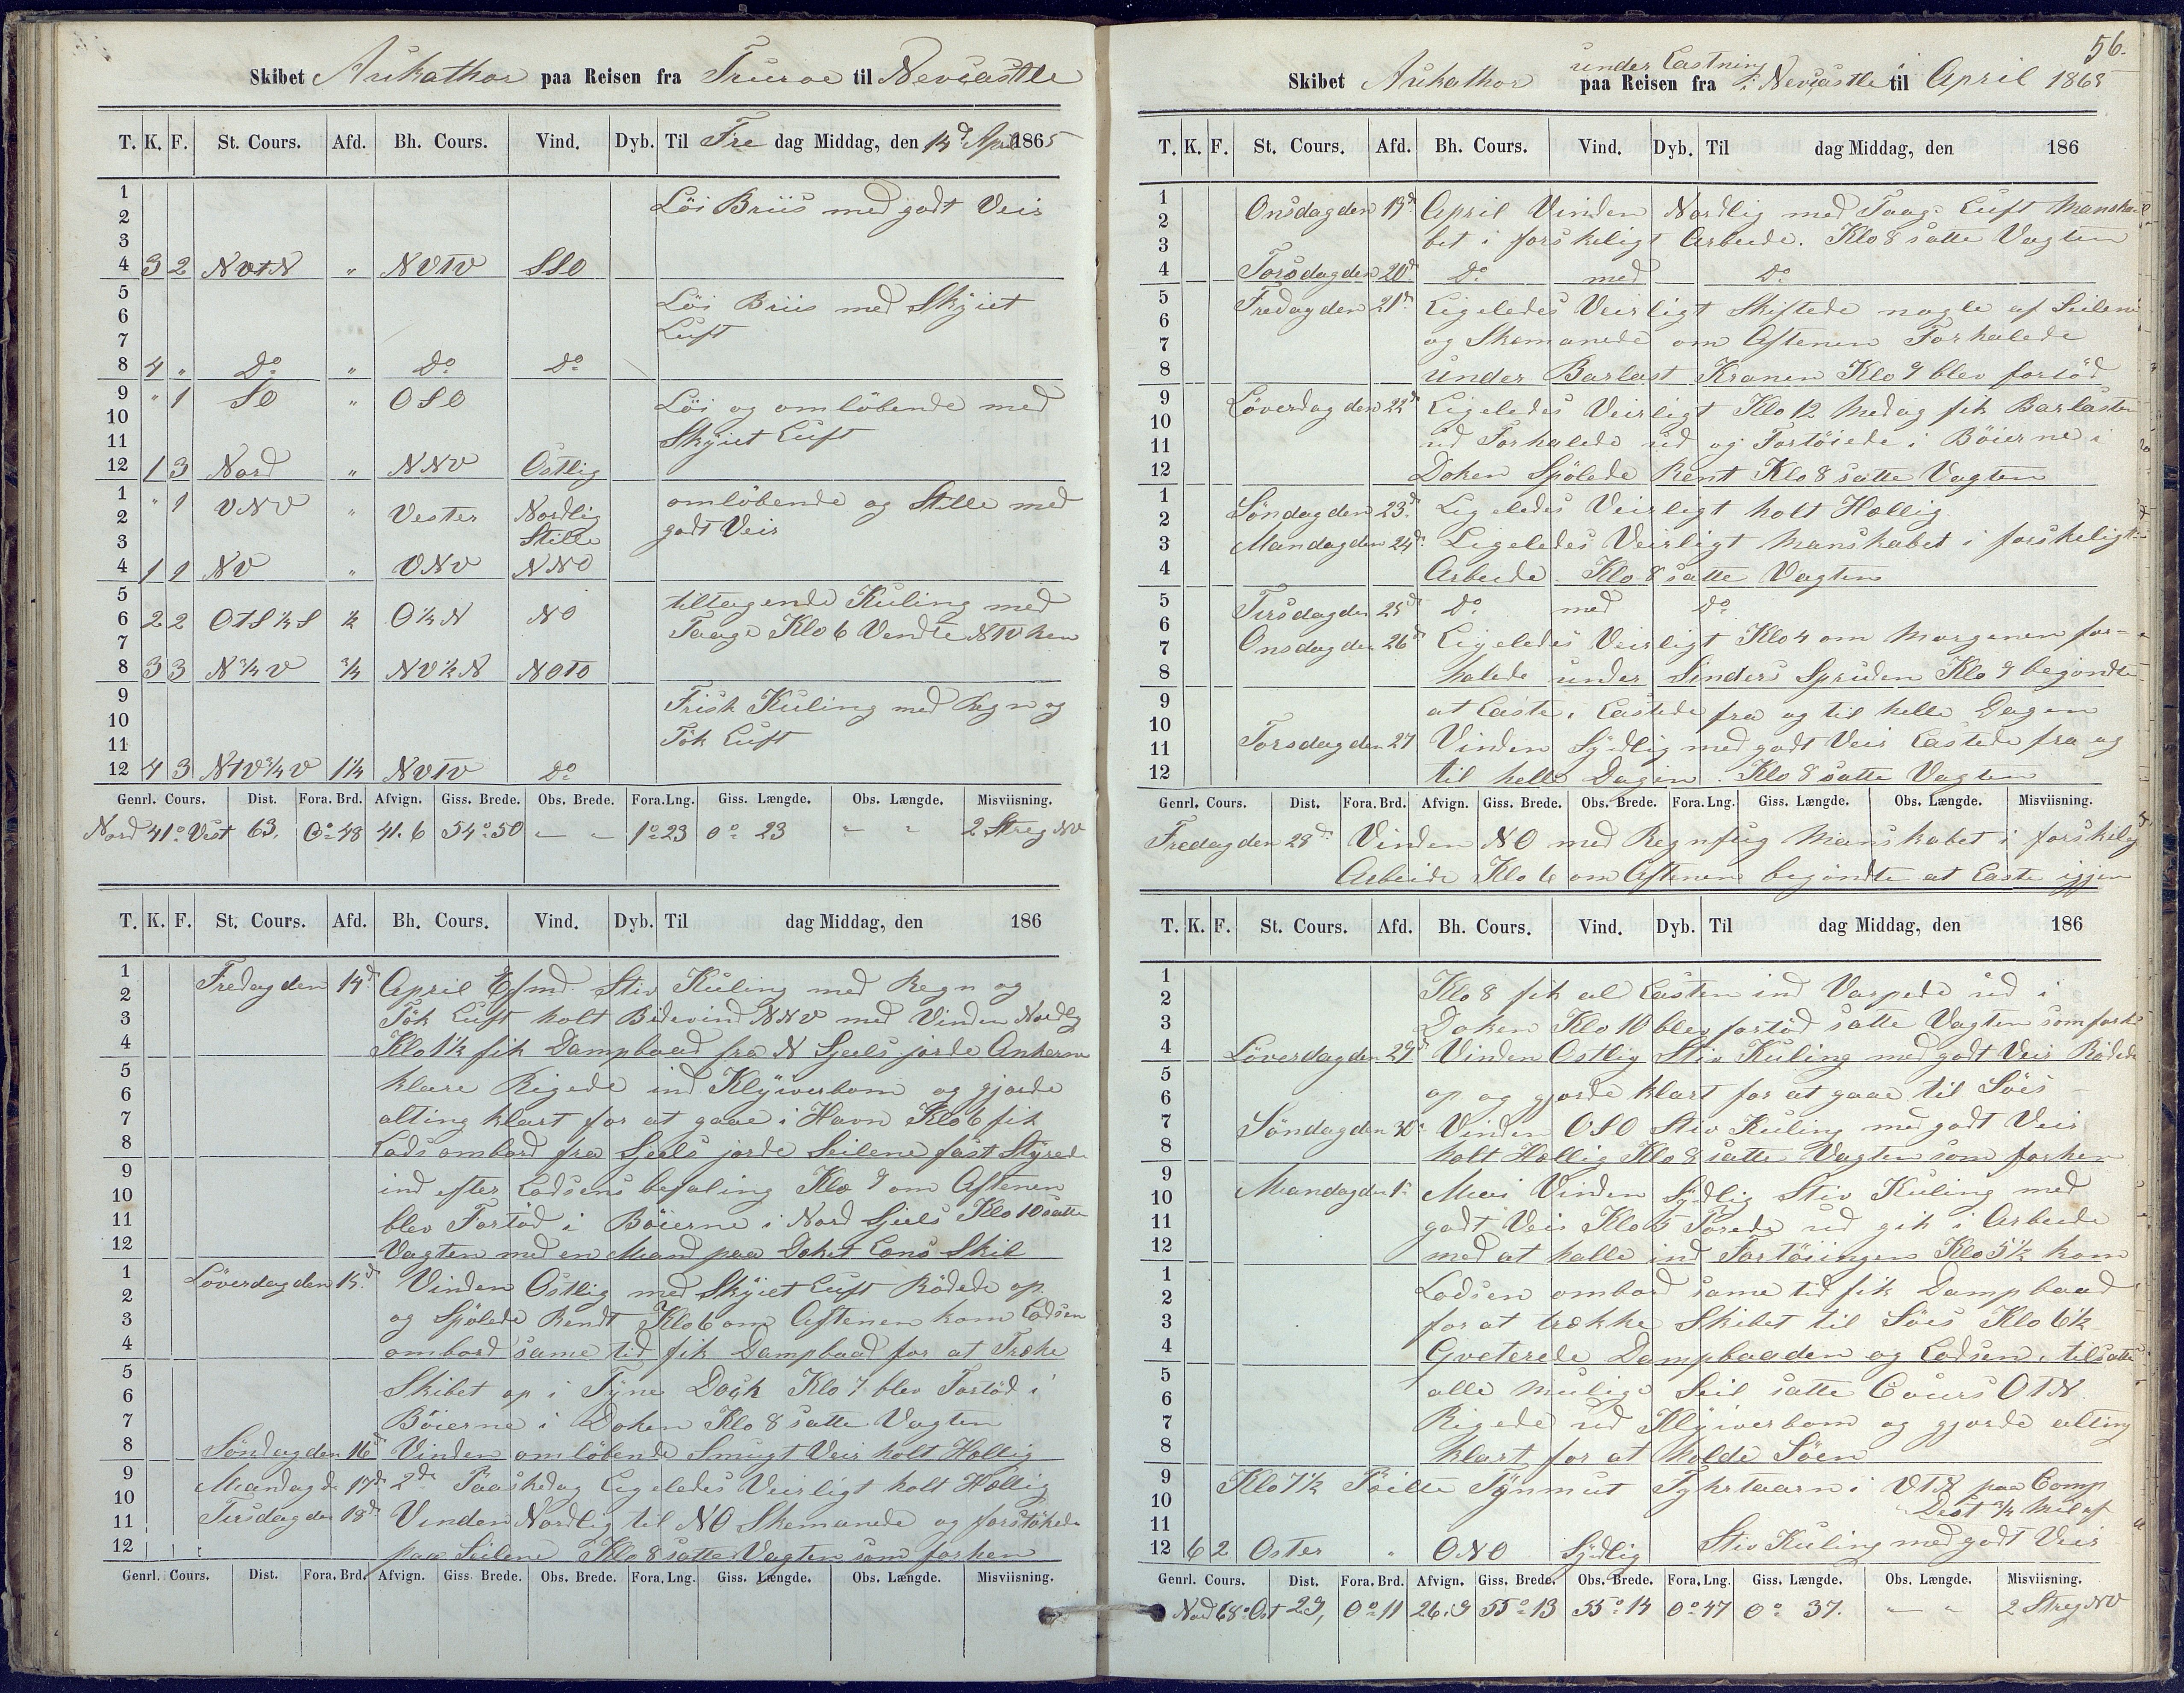 Skibet Aukathor paa Reisen fra Truroe til Nevcastle
T. K. F. St. Cours. Afd. Bh. Cours. Vind. Dyb. Til Fre dag Middag, den 14d April 1865
1 Löi Briis med godt Veir
2
3
4 3 2 NVtN " NVTV SSO
5 Löi Briis med Skÿiet
6 Luft
7
8 4 " Do " Do Do
9 " 1 SO " OSO Löi og omlöbende med
10 Skÿiet Luft
11
12 1 3 Nord " NNV Östlig
1 " 1 VNV " Vester Nordlig omlöbende og Stille med
2 godt Veir
3 Stille
4 1 1 NV " VNV NNO
5 tiltagende Kuling med
6 2 2 OTS½S ½ O½N NO Taage Klo 6 Vendte NV hen
7
8 3 3 N¾V ¾ NV½N NOTO
9 Frisk Kuling med Regn og
10 Tök Luft
11
12 4 3 NTV¾V 1¼ NVTV Do
Genrl. Cours. Dist. Fora. Brd. Afvign. Giss. Brede. Obs. Brede. Fora. Lng. Giss. Længde. Obs. Længde. Misviisning.
Nord 41° Vest 63. 0°48 41.6 54°50 — " 1°23 0° 23 " " 2 Streg NV
T. K. F. St. Cours. Afd. Bh. Cours. Vind. Dyb. Til dag Middag, den 186
1 Fredag den 14d April Efmd. Stiv Kuling med Regn og
2
3 Tök Luft holt Bidevind NNV med Vinden Nordlig
4 Klo 1½ fik Dampbaad fra N Sjeels jorde Ankerne
5 klare Rigede ind Klÿiverbom og gjorde
6
7 alting klart for at gaae i Havn Klo 6 fik
8 Lods ombord fra Sjeels jorde Seilene fast Stÿrede
9 ind efter Lodsens befaling Klo 9 om Aftenen
10
11 blev Fortöd i Böierne i Nord Sjeels Klo 10 satte
12 Vagten med en Mand paa Deket Lens Skib
1 Löverdag den 15d Vinden Östlig med Skÿiet Luft Rödede op
2
3 og Spölede Rendt Klo 6 om Aftenen kom Lodsen
4 ombord same tid fik Dampbaad for at Trække
5 Skibet op i Tÿne Dock Klo 7 blev Fortöd i
6
7 Böierne i Doken Klo 8 satte Vagten
8 Söndag den 16d Vinden omlöbende Smugt Veir holt Hellig
9 Mandag d. 17d 2d Paaskedag Ligeledes Veirligt holt Hellig
10
11 Tirsdag den 18d Vinden Nordlig til NO Skemanede og forstökede
12 paa Seilene Klo 8 satte Vagten som forhen
Genrl. Cours. Dist. Fora. Brd. Afvign. Giss. Brede. Obs. Brede. Fora. Lng. Giss. Længde. Obs. Længde. Misviisning.
56.
under Lastning
Skibet Aukathor paa Reisen fra i Nevcastle til April 1865
T. K. F. St. Cours. Afd. Bh. Cours. Vind. Dyb. Til dag Middag, den 186
1 Onsdag den 19d April Vinden Nordlig med Taage Luft Manska
2
3 bet i forskeligt Arbeide. Klo 8 satte Vagten
4 Torsdag den 20d Do med Do
5 Fredag den 21d Ligeledes Veirligt Skiftede nogle af Seilene
6
7 og Skemanede om Aftenen Forhalede
8 under Barlast Kranen Klo 9 blev fortöd
9 Löverdag den 22d Ligeledes Veirligt Klo 12 Medag fik Barlasten
10
11 ud Forhalede ud og Fortöiede i Böierne i
12 Doken Spölede Rent Klo 8 satte Vagten
1 Söndag den 23d Ligeledes Veirligt holt Hellig
2
3 Mandag den 24d Ligeledes Veirligt Manskabet i forskeligt
4 Arbeide Klo 8 satte Vagten
5 Tirsdag den 25d Do med Do
6
7 Onsdag den 26d Ligeledes Veirligt Klo 4 om Morgenen for-
8 halede under Sinders Spruden Klo 9 begöndte
9 at Laste. Lastede fra og til helle Dagen
10
11 Torsdag den 27 Vinden Sÿdlig med godt Veir Lastede fra og
12 til helle Dagen. Klo 8 satte Vagten
Genrl. Cours. Dist. Fora. Brd. Afvign. Giss. Brede. Obs. Brede. Fora. Lng. Giss. Længde. Obs. Længde. Misviisning.
Fredag den 28d Vinden NO med Regnfug Manskabet i forskelig
Arbeide Klo 6 om Aftenen begöndte at Laste igjen
T. K. F. St. Cours. Afd. Bh. Cours. Vind. Dyb. Til dag Middag, den 186
1 Klo 8 fik al Lasten ind Varpede ud i
2
3 Doken Klo 10 blev fortöd satte Vagten som forh
4 Löverdag den 29d Vinden Ostlig Stiv Kuling med godt Veir Rödede
5 op og gjorde klart for at gaae til Söes
6
7 Söndag den 30d Vinden OSO Stiv Kuling med godt Veir
8 holt Hellig Klo 8 satte Vagten som forhen
9 Mandag den 1 Maii Vinden Sÿdlig Stiv Kuling med
10
11 godt Veir Klo 5 Törede ud gik i Arbeide
12 med at halle ind Fortöiingen Klo 5½ kom
1 Lodsen ombord same tid fik Dampbaad
2
3 for at trække Skibet til Söes Klo 6½
4 Qveterede Dampbaaden og Lodsen, tilsatte
5 alle mulige Seil satte Cours OTN
6
7 Rigede ud Klÿiverbom og gjorde alting
8 klart for at holde Söen
9 Klo 7½ Peilte Tÿnmut Fyhrtaarn i VTN paa Comp
10 Dest ¾ Mil af
11
12 6 2 Oster " ONO Sÿdlig Stiv Kuling med godt Veir
Genrl. Cours. Dist. Fora. Brd. Afvign. Giss. Brede. Obs. Brede. Fora. Lng. Giss. Længde. Obs. Længde. Misviisning.
Nord 68° Ost 29, 0°11 26.9 55°13 55°14 0°47 0° 37. " " 2 Streg NV